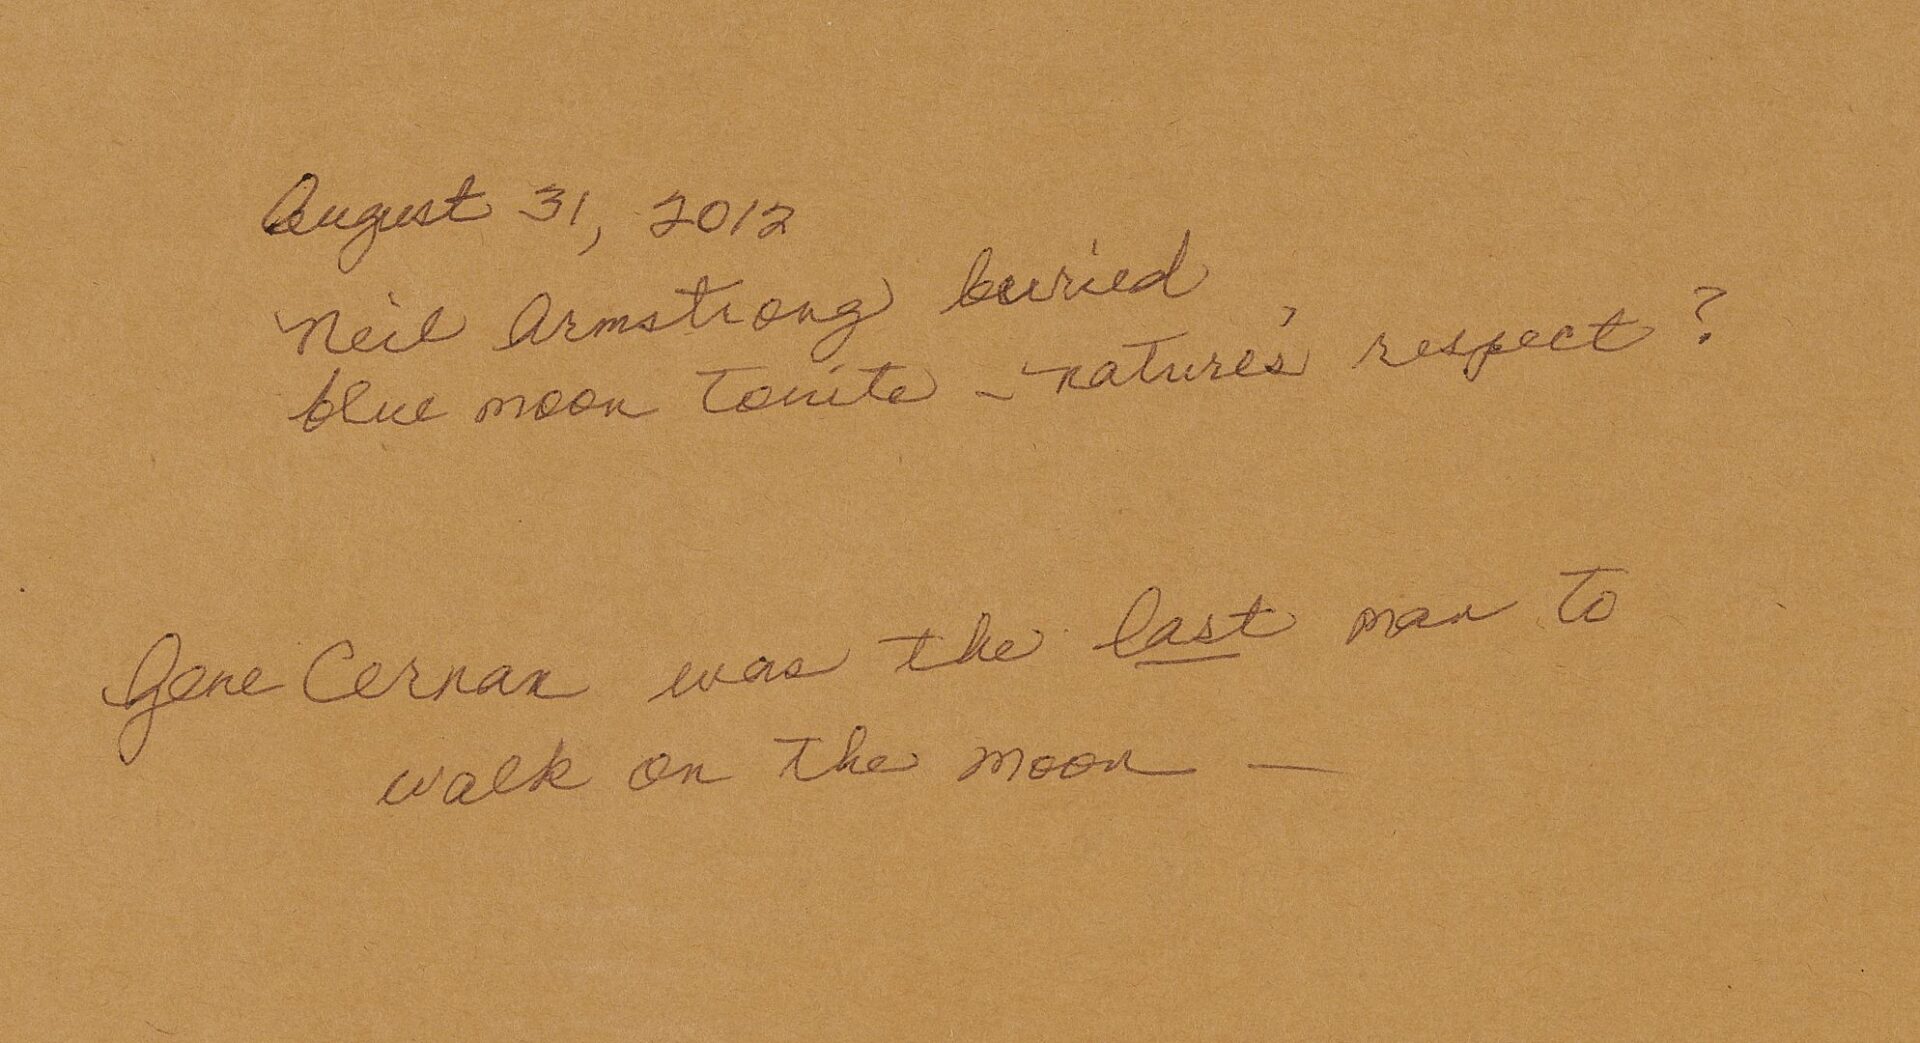 August 31, 2012
Neil Armstrong buried
blue moon tonite - nature's respect?
Gene Cernan was the last man to
walk on the moon —